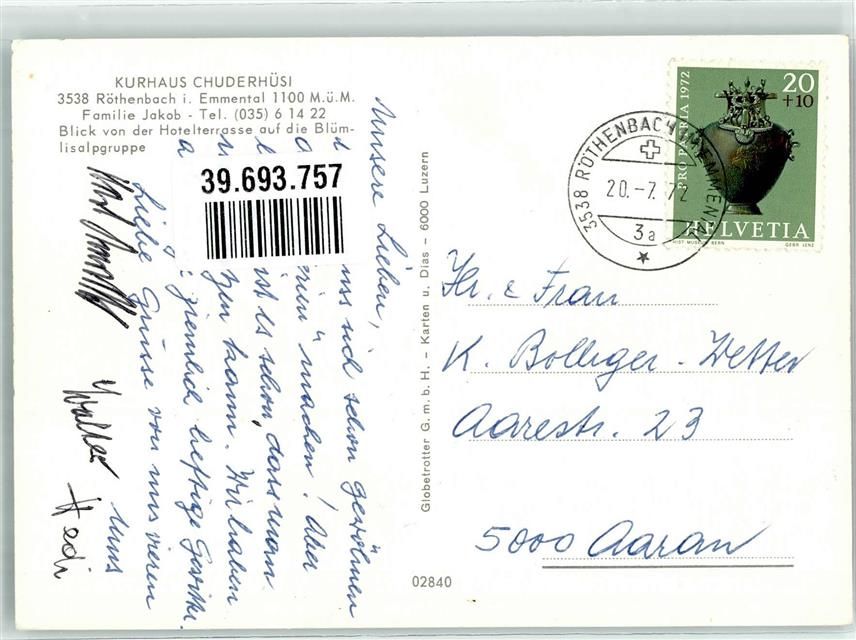 KURHAUS CHUDERHÜSI
3538 Röthenbach i. Emmental 1100 M.ü.M.
Familie Jakob - Tel. (035) 6 14 22
Blick von der Hotelterrasse auf die Blüm-
lisalpgruppe
39.693.757
Unsere Lieben,
uss sich schon gewöhnen
" machen! Aber
ist es schon, dass man
kann. Wir haben
ziemlich heftige Gewitter.
Liebe Grüsse von uns vieren
Walter
Hedi
Globetrotter G.m.b.H. - Karten u. Dias - 6000 Luzern
02840
3538 RÖTHENBACH IM EMMENTAL
20.-7.72
3a
PRO PATRIA 1972
20
+10
HELVETIA
HIST. MUSEUM BERN
GEBR. LENZ
Hr. & Frau
K. Bolliger-Wetter
Aarestr. 23
5000 Aarau